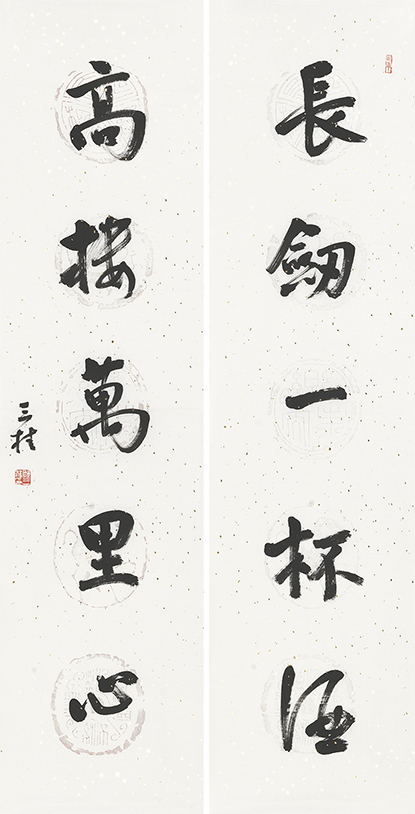 長劒一杯酒
高樓萬里心
三桂